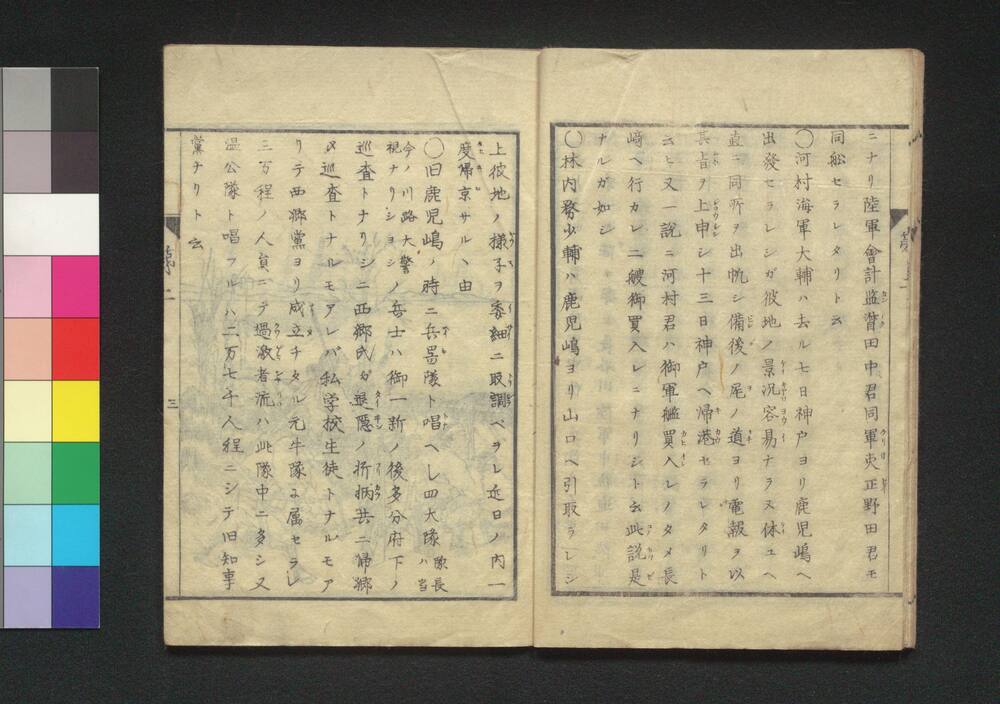 ニナリ陸軍會計監督田中君同軍吏正野田君モ
同舩セラレタリト云
〇河村海軍大輔ハ去ル七日神戸ヨリ鹿児嶋ヘ
出發セラレシガ彼地ノ景况容易ナラス体ユヘ
直ニ同所ヲ出帆シ備後ノ尾ノ道ヨリ電報ヲ以
其旨ヲ上申シ十三日神戸ヘ帰港セラレタリト
云ヒ又一説ニ河村君ハ御軍艦買入レノタメ長
﨑ヘ行カレ二艘御買入レニナリシト云此説是
ナルガ如シ
〇林内務少輔ハ鹿児嶋ヨリ山口ヘ引取ラレシ
上彼地ノ様子ヲ委細ニ取調ベヲレ近日ノ内一
度帰京サルヽ由
〇旧鹿児嶋ノ時ニ兵噐隊ト唱ヘシ四大隊 隊長ハ当
今ノ川路大警視ナリシヨシノ兵士ハ御一新ノ後多分府下ノ
巡査トナリシニ西郷氏ガ退隠ノ折柄共ニ帰郷
メ巡査トナルモアレバ私学挍生徒トナルモア
リテ西郷黨ヨリ成立チタル元牛隊ニ属セラレ
三万程ノ人員ニテ過激者流ハ此隊中ニ多シ又
温公隊ト唱フルハ二万七千人程ニシテ旧知事
黨ナリト云
三